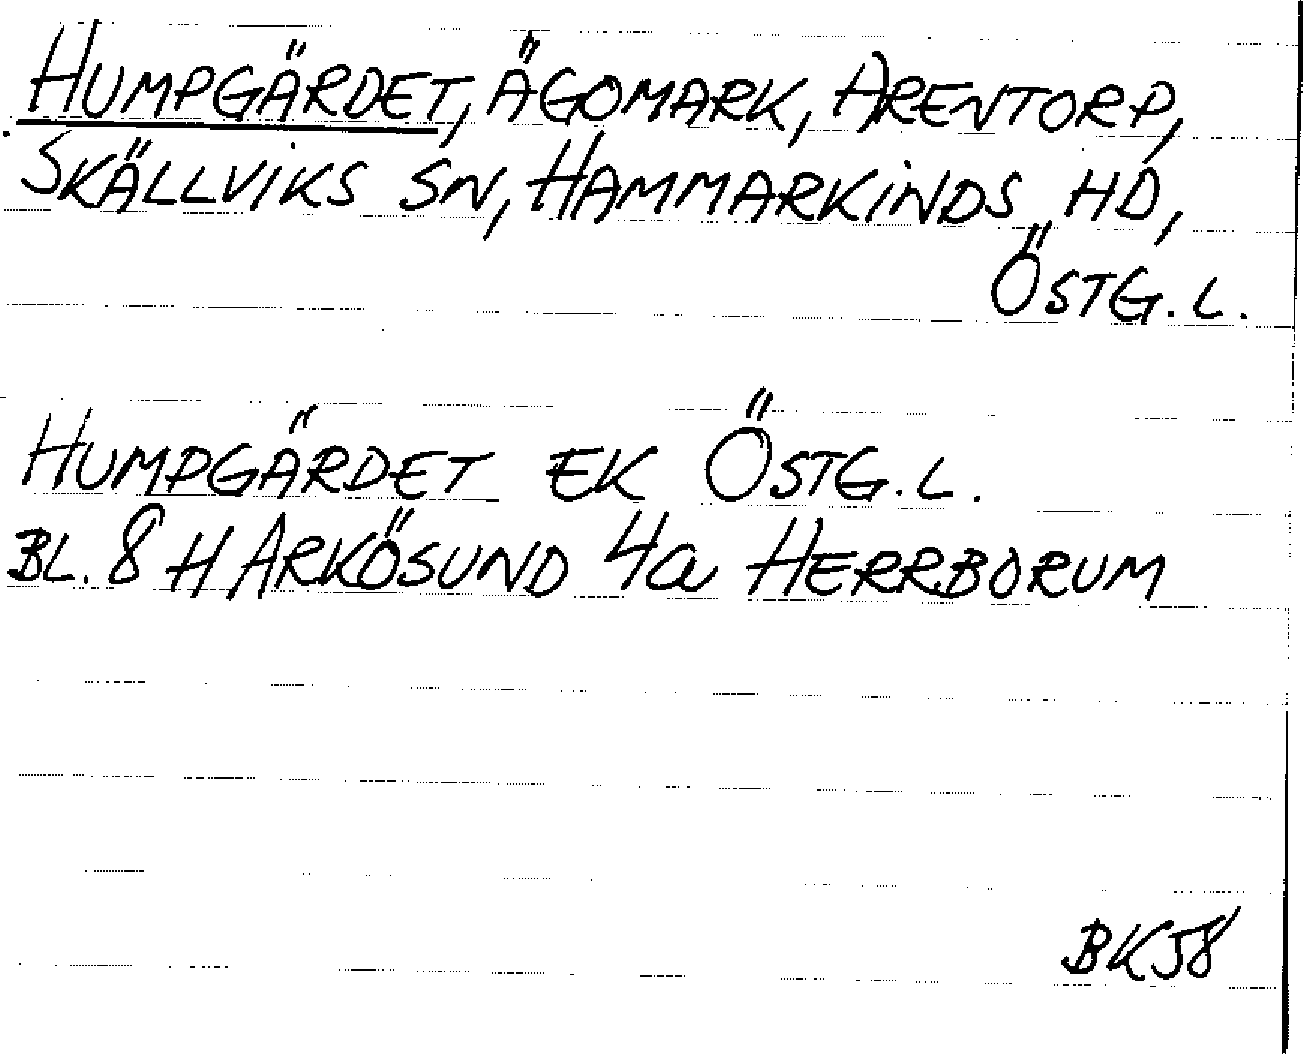 HUMPGÄRDET, ÄGOMARK, ARENTORP,
SKÄLLVIKS SN, HAMMARKINDS HD,
ÖSTG. L.
HUMPGÄRDET EK ÖSTG. L.
BL. 8 H ARKÖSUND 4a HERRBORUM
BK58